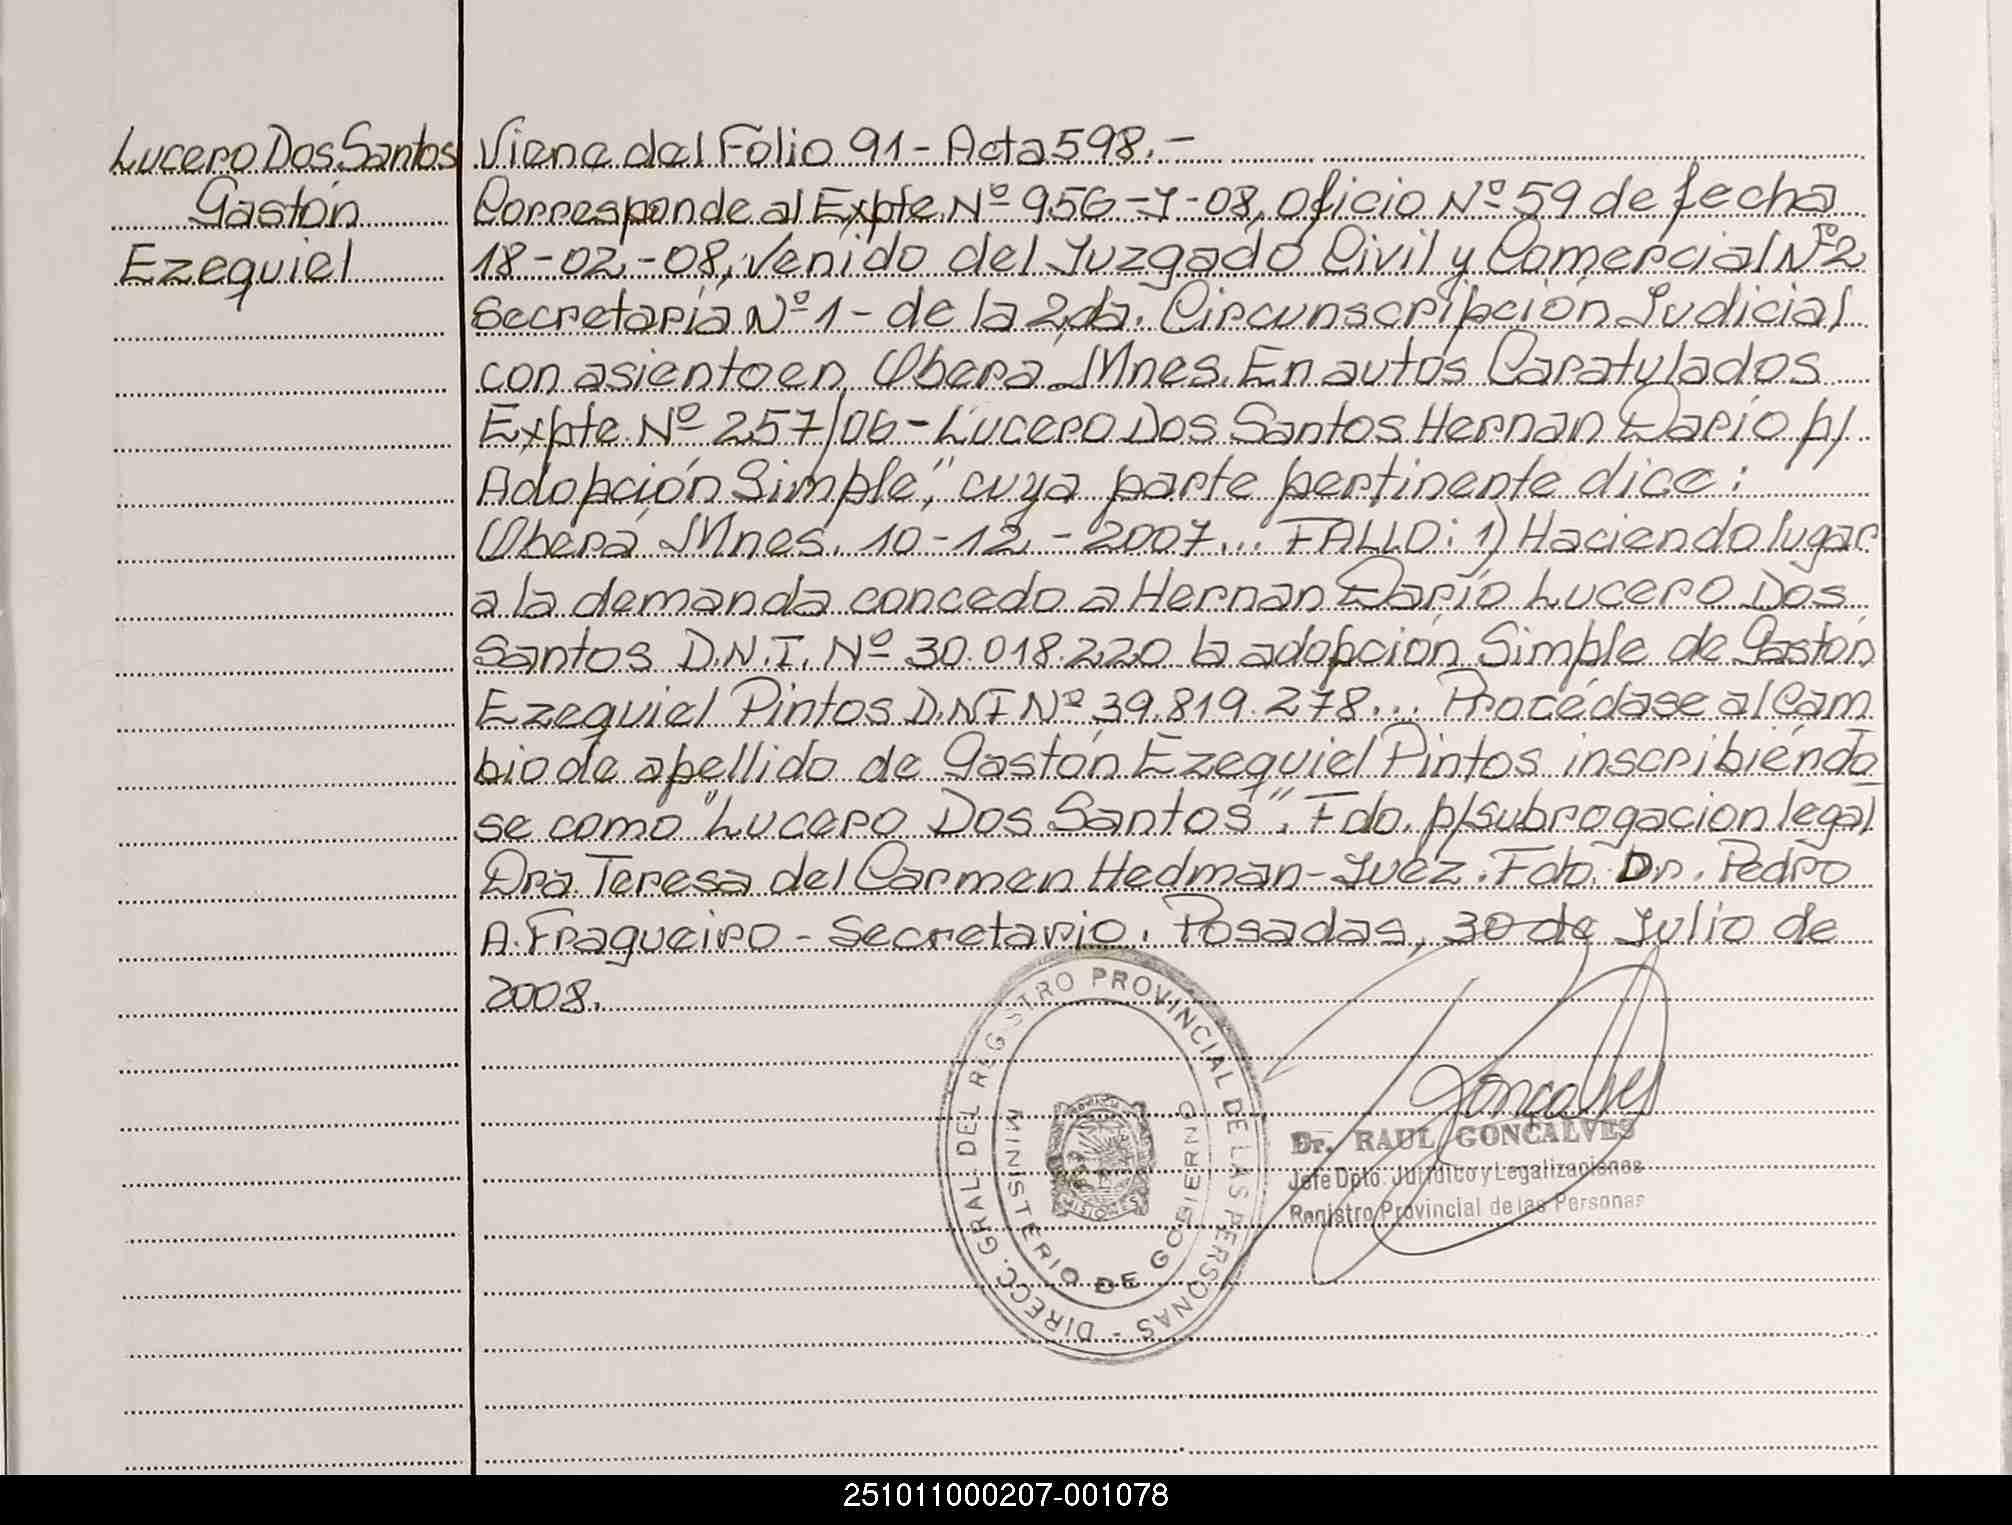 Lucero Dos Santos
Gastón
Ezequiel
Viene del Folio 91 - Acta 598. -
Corresponde al Expte Nº 956-J-08, oficio Nº 59 de fecha
18-02-08, venido del Juzgado Civil y Comercial Nº 2
Secretaria Nº 1 - de la 2da. Circunscripción Judicial
con asiento en Oberá Mnes. En autos Caratulados
Expte Nº 257/06 - Lucero Dos Santos Hernan Darío p/
Adopción Simple", cuya parte pertinente dice:
Oberá Mnes. 10-12-2007... FALLO: 1) Haciendo lugar
a la demanda concedo a Hernan Darío Lucero Dos
Santos D.N.I. Nº 30.018.220 la adopción Simple de Gastón
Ezequiel Pintos D.N.I Nº 39.819.278... Procédase al Cam
bio de apellido de Gastón Ezequiel Pintos inscribiéndo
se como "Lucero Dos Santos". Fdo. p/subrogacion legal
Dra. Teresa del Carmen Hedman - Juez. Fdo. Dr. Pedro
A. Fragueiro - Secretario. Posadas, 30 de Julio de
2008.
DIRECC. GRAL. DEL REGISTRO PROVINCIAL DE LAS PERSONAS -
MINISTERIO DE GOBIERNO
MISIONES
Gonçalves
Dr. RAUL GONCALVES
Jefe Dpto. Jurídico y Legalizaciones
Registro Provincial de las Personas
251011000207-001078